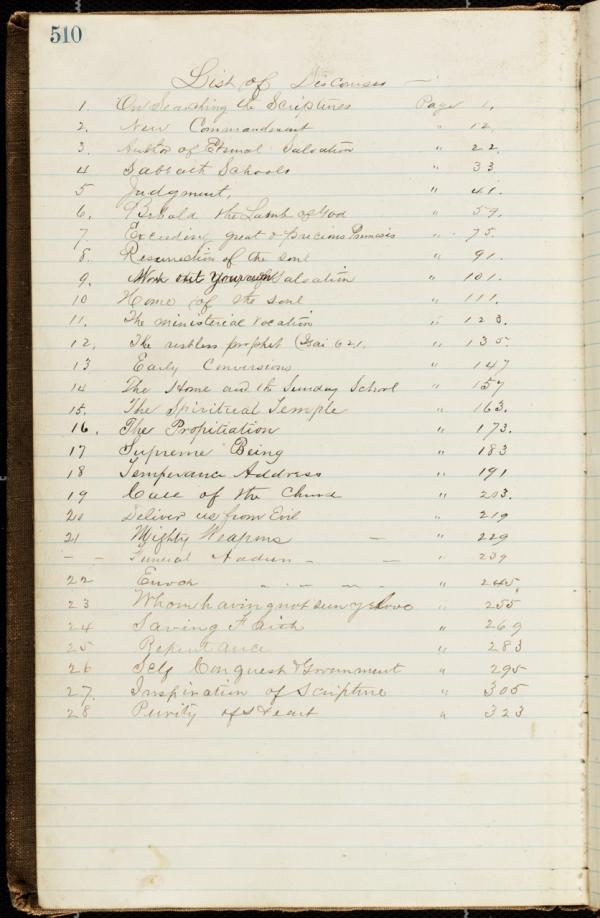 510
List of Discourses —
1. On Searching the Scriptures Page 1.
2. New Commandment " 12
3. Author of Eternal Salvation " 22
4 Sabbath Schools " 33
5 Judgment, " 41.
6. Behold the Lamb of God " 59.
7. Exceeding great & precious Promises " 75.
8. Resurrection of the soul " 91.
9. Work out Your own Salvation " 101.
10 Home of the soul " 111.
11. The ministerial vocation " 123.
12. The restless prophet (Isai 62.1. " 135.
13 Early Conversions " 147
14 The Home and the Sunday School " 157
15. The Spiritual Temple " 163.
16. The Propitiation " 173.
17 Supreme Being " 183
18 Temperance Address " 191
19 Call of the Church " 203.
20 Deliver us from Evil " 219
21 Mighty Weapons — " 229
– – Funeral Address – — " 239
22 Enoch " 245
23 Whom having not seen ye love " 255
24 Saving Faith " 269
25 Repentance " 283
26 Self Conquest & Government " 295
27. Inspiration of Scripture " 305
28 Purity of Heart " 323